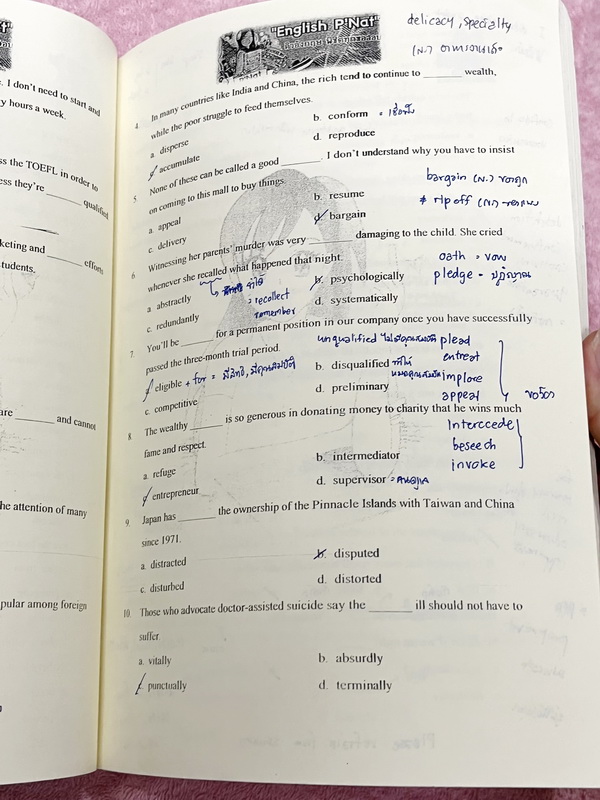 . I don't need to start and
y hours a week.
ss the TOEFL in order to
ess they're ______ qualified
keting and ______ efforts
tudents.
are ______ and cannot
he attention of many
pular among foreign
"English P'Nat"
delicacy, Specialty
(น.)
4. In many countries like India and China, the rich tend to continue to ______ wealth,
while the poor struggle to feed themselves.
a. disperse
b. conform = เชื่อฟัง
c. accumulate
d. reproduce
5. None of these can be called a good ______. I don't understand why you have to insist
on coming to this mall to buy things.
a. appeal
b. resume
c. delivery
d. bargain
bargain (น.) ของถูก
* rip off (น.)
6. Witnessing her parents' murder was very ______ damaging to the child. She cried
whenever she recalled what happened that night.
a. abstractly
b. psychologically
c. redundantly
d. systematically
= recollect
remember
oath = vow
pledge = ปฏิญาณ
7. You'll be ______ for a permanent position in our company once you have successfully
passed the three-month trial period.
unqualified ไม่มีคุณสมบัติ
eligible + for = มีสิทธิ, มีคุณสมบัติ
b. disqualified ทำให้หมดคุณสมบัติ
c. competitive
d. preliminary
plead
entreat
implore
appeal
ขอร้อง
Intercede
beseech
invoke
8. The wealthy ______ is so generous in donating money to charity that he wins much
fame and respect.
a. refuge
b. intermediator
c. entrepreneur
d. supervisor = คนคุม
9. Japan has ______ the ownership of the Pinnacle Islands with Taiwan and China
since 1971.
a. distracted
b. disputed
c. disturbed
d. distorted
10. Those who advocate doctor-assisted suicide say the ______ ill should not have to
suffer
a. vitally
b. absurdly
c. punctually
d. terminally